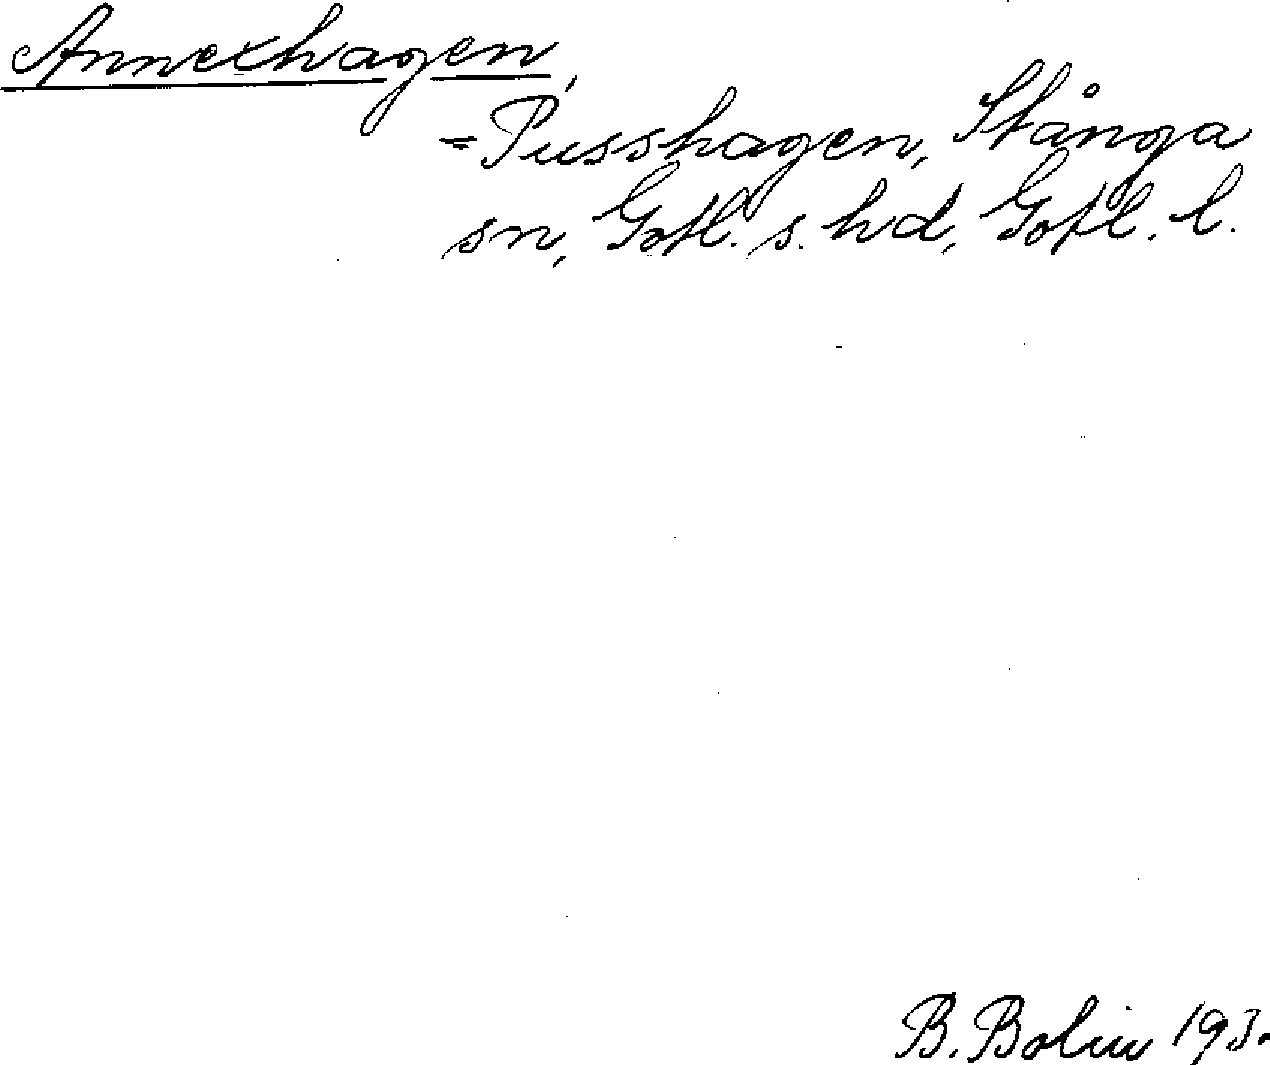 Annexhagen,
=Pusshagen, Stånga
sn, Gotl. s. hd, Gotl. l.
B. Bolin 193.